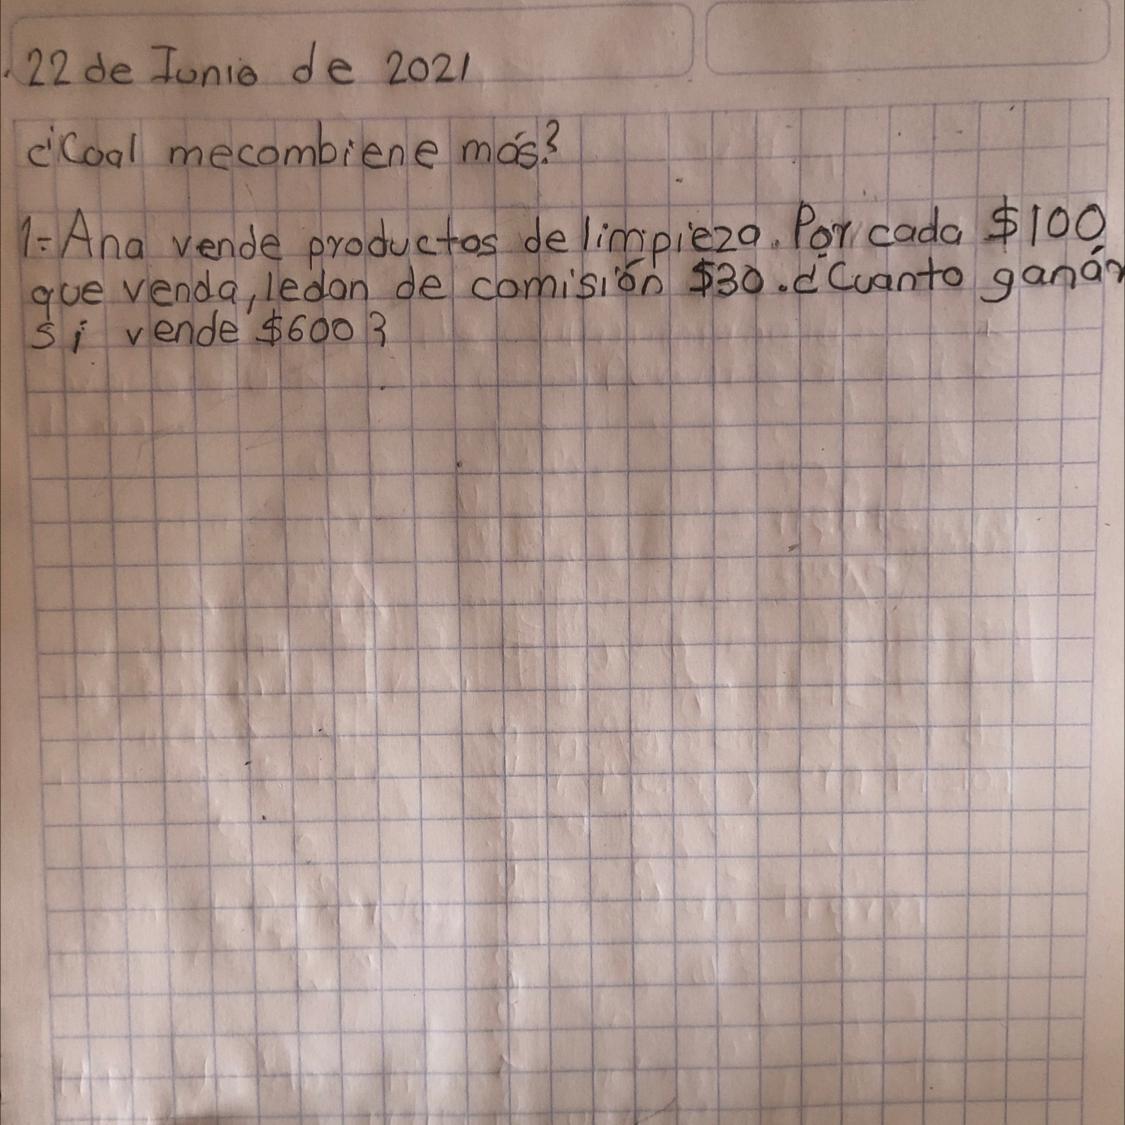 22 de Junio de 2021
¿Coal mecombiene más?
1.- Ana vende productos de limpieza. Por cada $100
que venda, le dan de comisión $30. ¿Cuanto ganár
si vende $600?